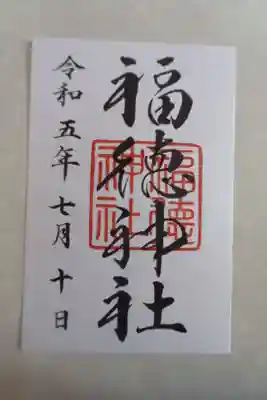 福徳神社
福徳
神社
令和五年七月十日